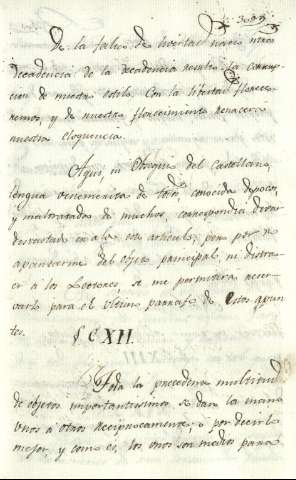 De la falta de libertad nacio ntra
decadencia de la decadencia resulto la corrup-
cion de nuestro estilo. Con la libertad florece-
remos, y de nuestro florecimiento renacera
nuestra eloquencia.
Aqui, en Obsequio del Castellano,
lengua benemerita de todos conocida de pocos,
y maltratada de muchos, correspondia dexar
el este articulo, pero por no
apartarme del objeto principal, ni distra-
er a los Lectores, se me permitira reser-
varlo para el ultimo parrafo de estos apun-
tes.
§ CXII.
Toda la precedente multitud
de objetos importantissimos se dan la mano
unos a otros reciprocamente; o por decirlo
mejor, y como es, los unos son medios para